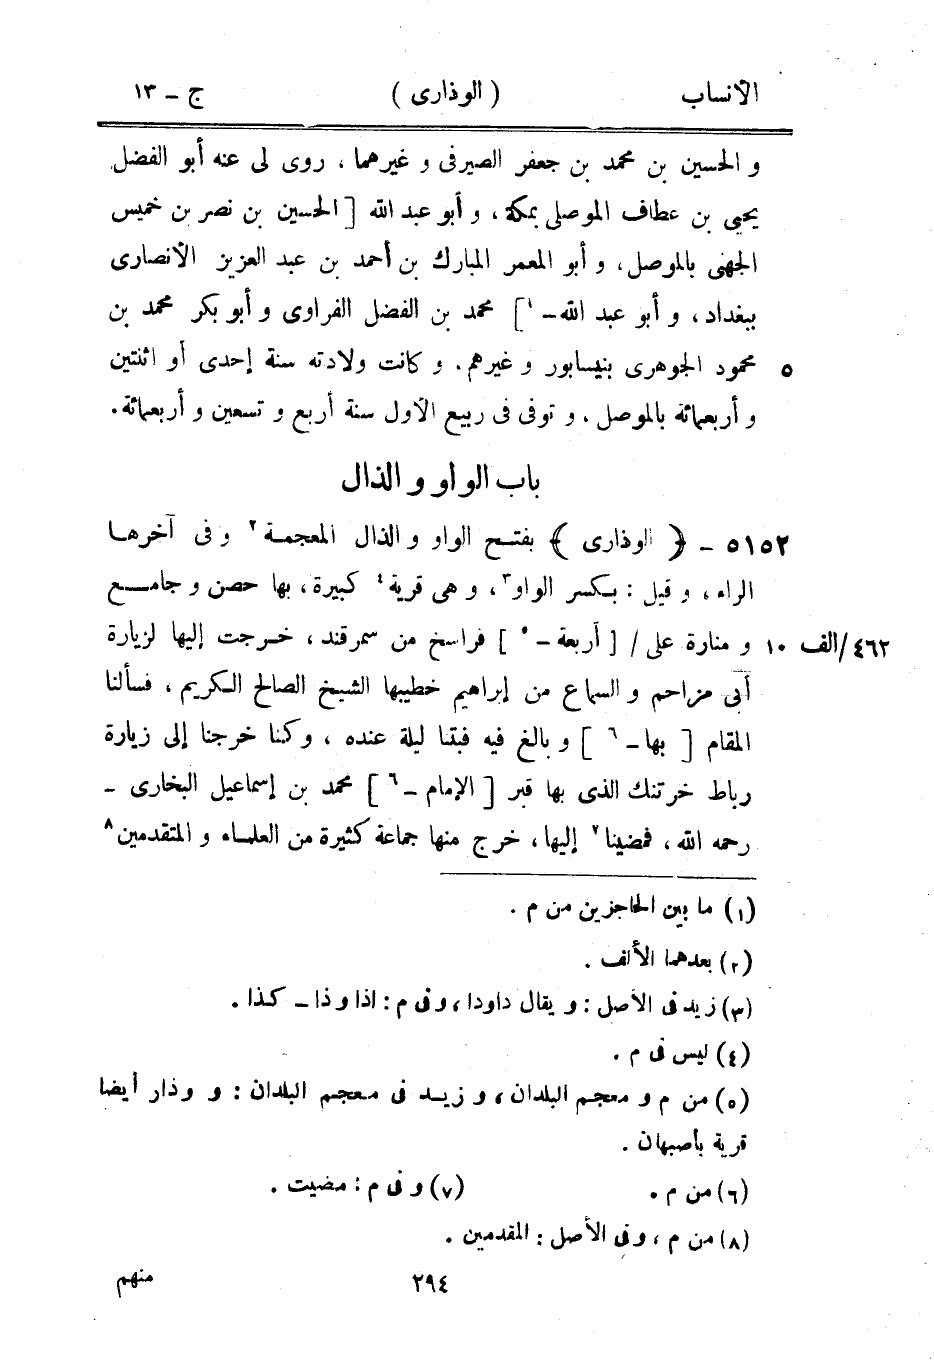 الأنساب (الوذارى) ج - ١٣
و الحسين بن محمد بن جعفر الصيرفى و غيرهما ، روى لى عنه أبو الفضل
يحيى بن عطاف الموصلى بمكة ، و أبو عبد الله [ الحسين بن نصر بن خميس
الجهنى بالموصل ، و أبو المعمر المبارك بن أحمد بن عبد العزيز الأنصارى
ببغداد ، و أبو عبد الله - ١ ] محمد بن الفضل الفراوى و أبو بكر محمد بن
٥ محمود الجوهرى بنيسابور و غيرهم . و كانت ولادته سنة إحدى أو اثنتين
و أربعمائة بالموصل ، و توفى فى ربيع الأول سنة أربع و تسعين و أربعمائة .
باب الواو و الذال
٥١٥٢ - ﴿ الوذارى ﴾ بفتح الواو و الذال المعجمة ٢ و فى آخرها
الراء ، و قيل : بكسر الواو ٣ ، و هى قرية ٤ كبيرة ، بها حصن و جامع
٤٦٢/الف ١٠ و منارة على / [ أربعة - ٥ ] فراسخ من سمرقند ، خرجت إليها لزيارة
أبى مزاحم و السماع من إبراهيم خطيبها الشيخ الصالح الكريم ، فسألنا
المقام [ بها - ٦ ] و بالغ فيه فبتنا ليلة عنده ، وكنا خرجنا إلى زيارة
رباط خرتنك الذى بها قبر [ الإمام - ٦ ] محمد بن إسماعيل البخارى -
رحمه الله ، فمضينا ٧ إليها ، خرج منها جماعة كثيرة من العلماء و المتقدمين ٨
(١) ما بين الحاجزين من م .
(٢) بعدهما الألف .
(٣) زيد فى الأصل : و يقال داودا ، و فى م : اذا وذا - كذا .
(٤) ليس فى م .
(٥) من م و معجم البلدان ، و زيد فى معجم البلدان : و وذار أيضا
قرية بأصبهان .
(٦) من م . (٧) و فى م : مضيت .
(٨) من م ، و فى الأصل : المقدمين .
٢٩٤ منهم